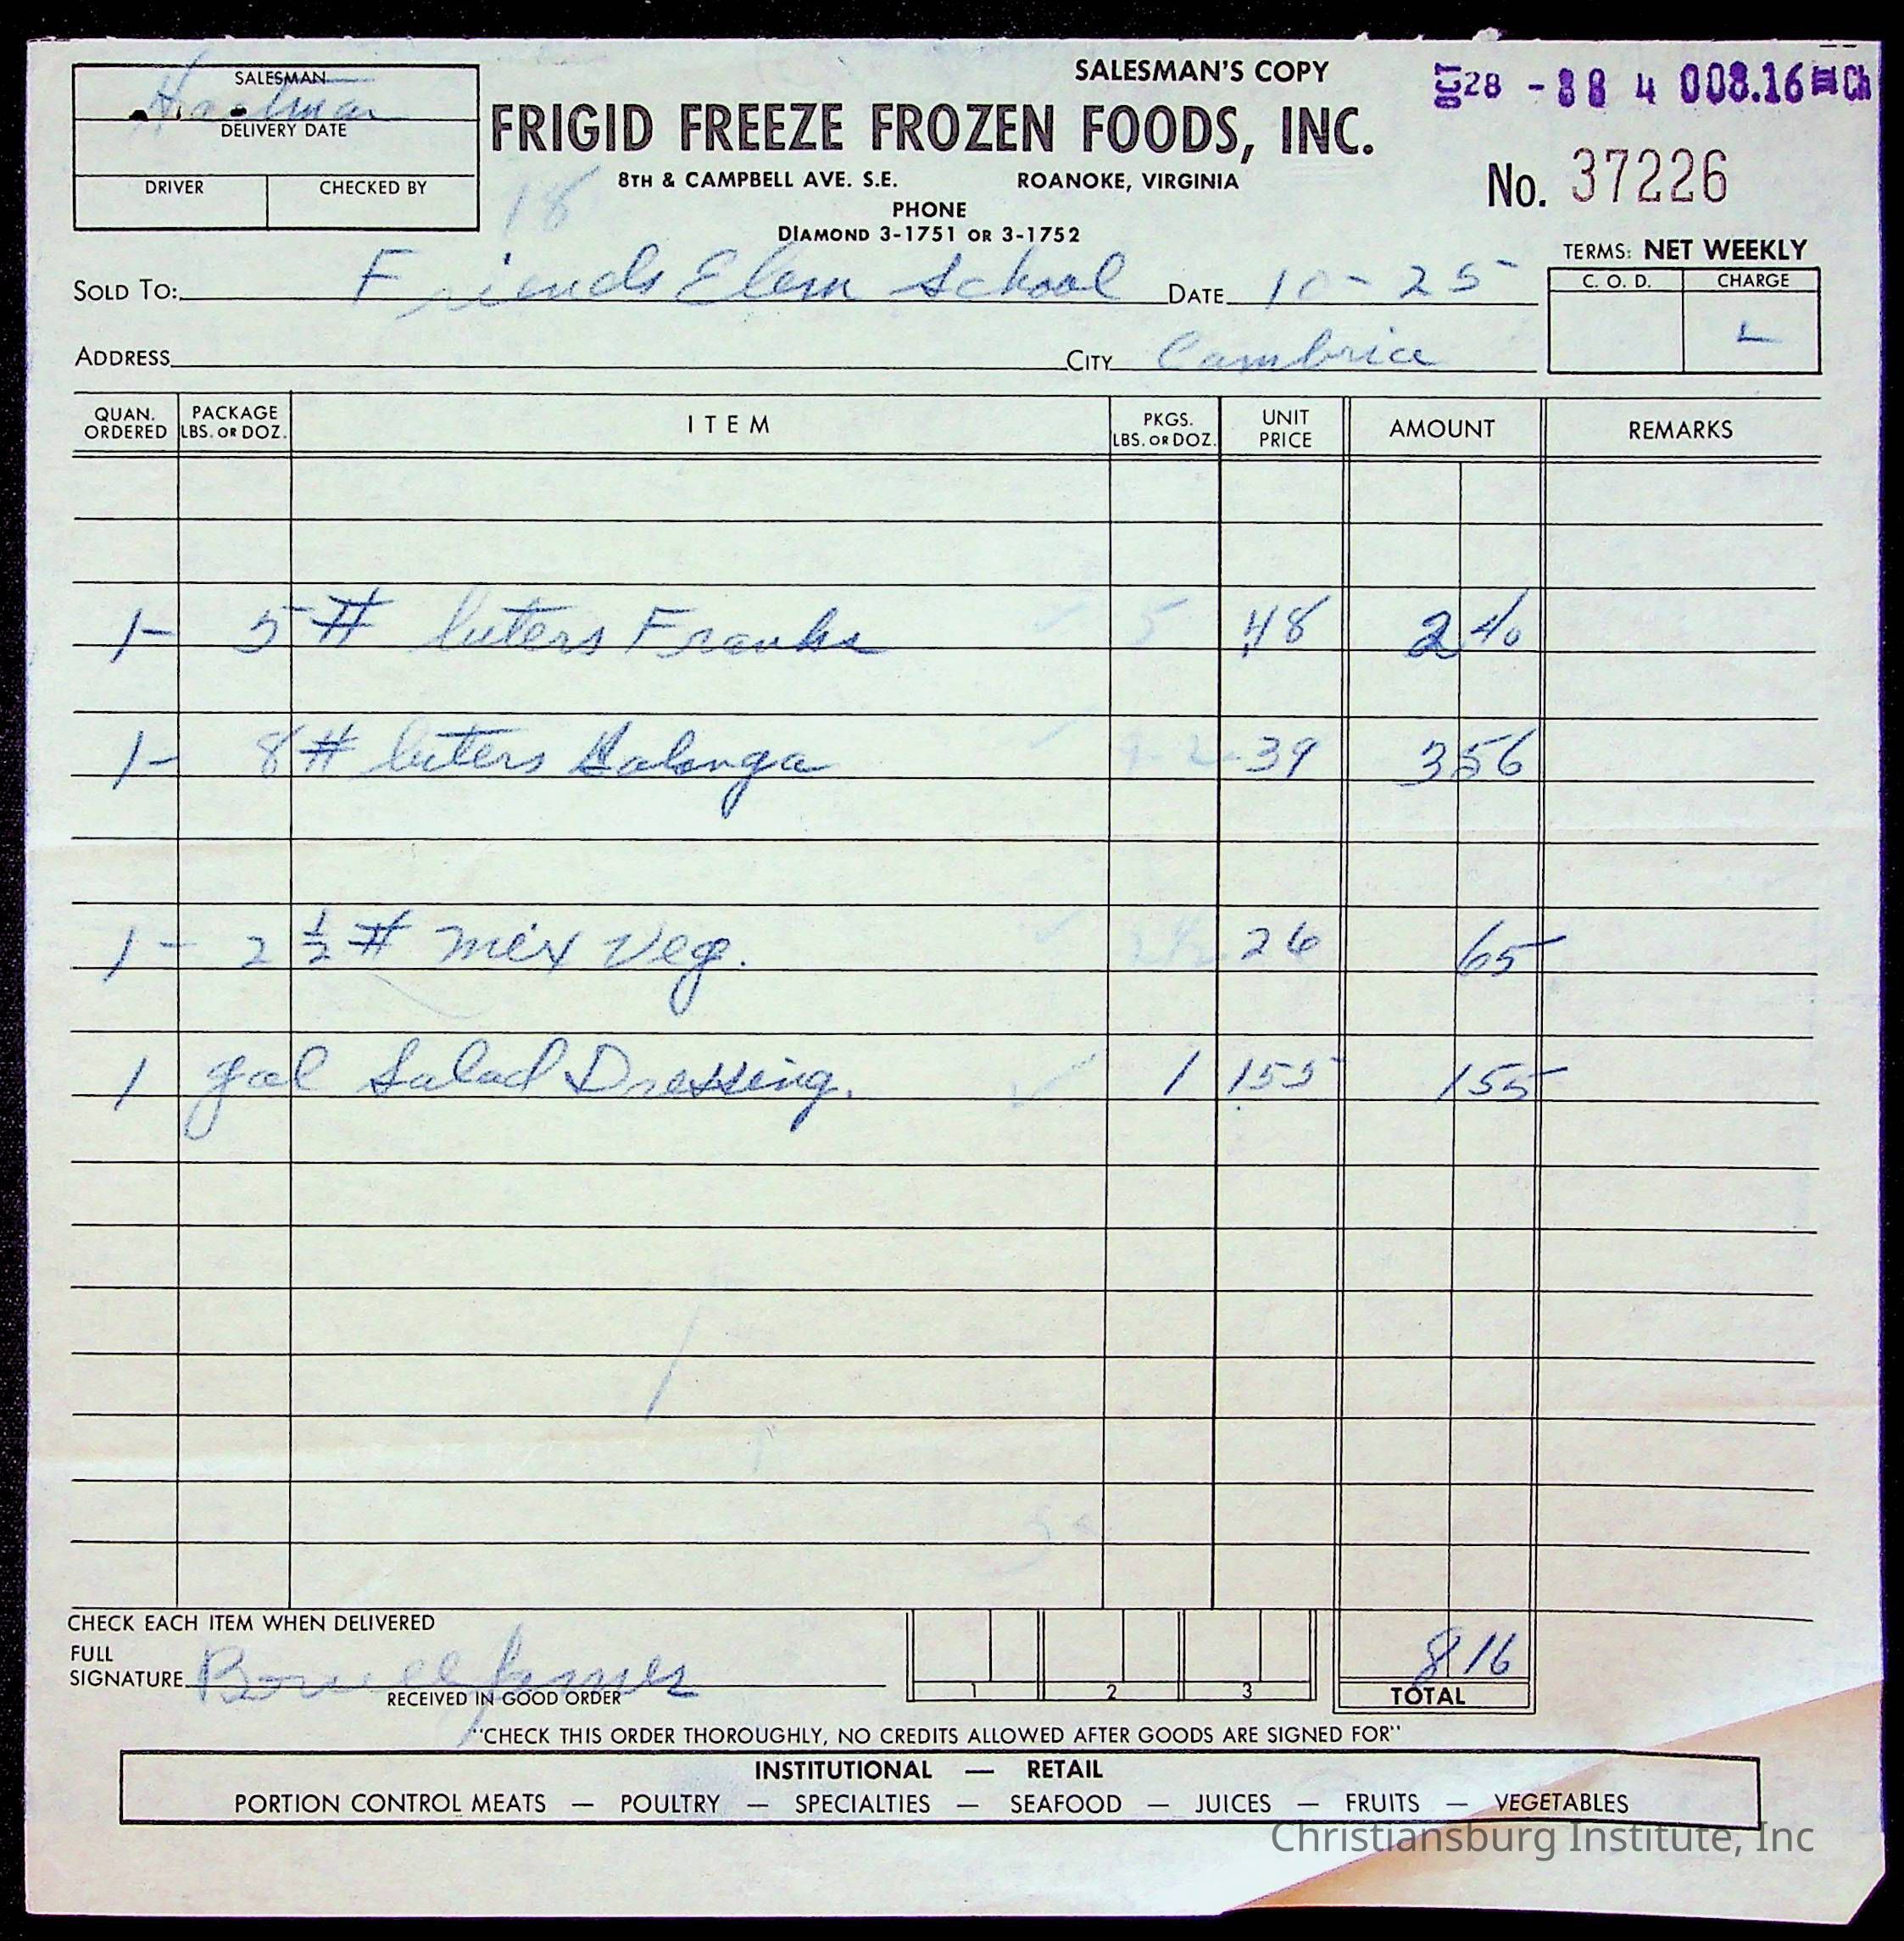 SALESMAN
Hartman
DELIVERY DATE
DRIVER CHECKED BY
SALESMAN'S COPY
OCT 28 -88 4 008.16 Ch
FRIGID FREEZE FROZEN FOODS, INC.
8TH & CAMPBELL AVE. S.E. ROANOKE, VIRGINIA
PHONE
DIAMOND 3-1751 OR 3-1752
18
No. 37226
TERMS: NET WEEKLY
C. O. D. CHARGE
SOLD TO: Friends Elem School DATE 10-25
ADDRESS CITY Cambria
QUAN. ORDERED PACKAGE LBS. OR DOZ. ITEM PKGS. LBS. OR DOZ. UNIT PRICE AMOUNT REMARKS
1- 5# luters Franks 5 48 2 40
1- 8# luters 39 3 56
1- 2 ½# mix Veg. 2½ 26 65
1 gal Salad Dressing. 1 155 1 55
CHECK EACH ITEM WHEN DELIVERED
FULL
SIGNATURE
RECEIVED IN GOOD ORDER
1 2 3
8 16
TOTAL
"CHECK THIS ORDER THOROUGHLY, NO CREDITS ALLOWED AFTER GOODS ARE SIGNED FOR"
INSTITUTIONAL — RETAIL
PORTION CONTROL MEATS — POULTRY — SPECIALTIES — SEAFOOD — JUICES — FRUITS — VEGETABLES
Christiansburg Institute, Inc